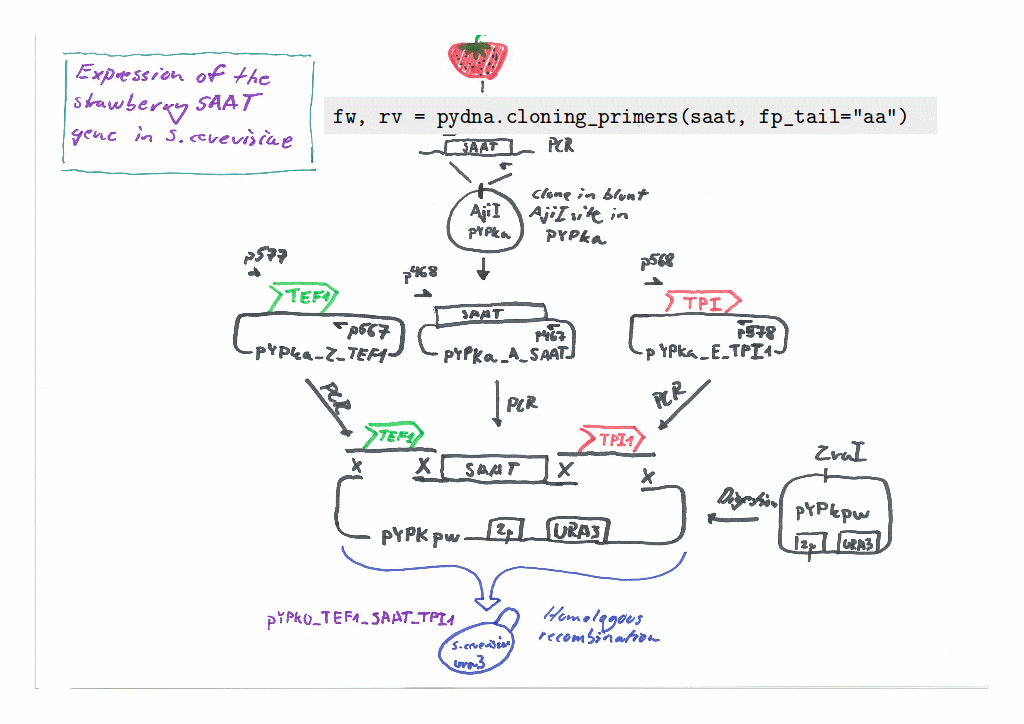 Expression of the
stawberry SAAT
gene in S. cerevisiae
fw, rv = pydna.cloning_primers(saat, fp_tail="aa")
SAAT PCR
Clone in blunt
AjiI site in
pYPka
AjiI
pYPka
p577
p468
p568
TEF1
SAAT
TPI
p667
p467
p578
pYPka_Z_TEF1
pYPka_A_SAAT
pYPka_E_TPI1
PCR
PCR
PCR
TEF1
TPI1
X X SAAT X X
ZraI
Digestion
pYPKpw
2µ URA3
pYPKpw 2µ URA3
pYPK0_TEF1_SAAT_TPI1
Homologous
recombination
S. cerevisiae
ura3